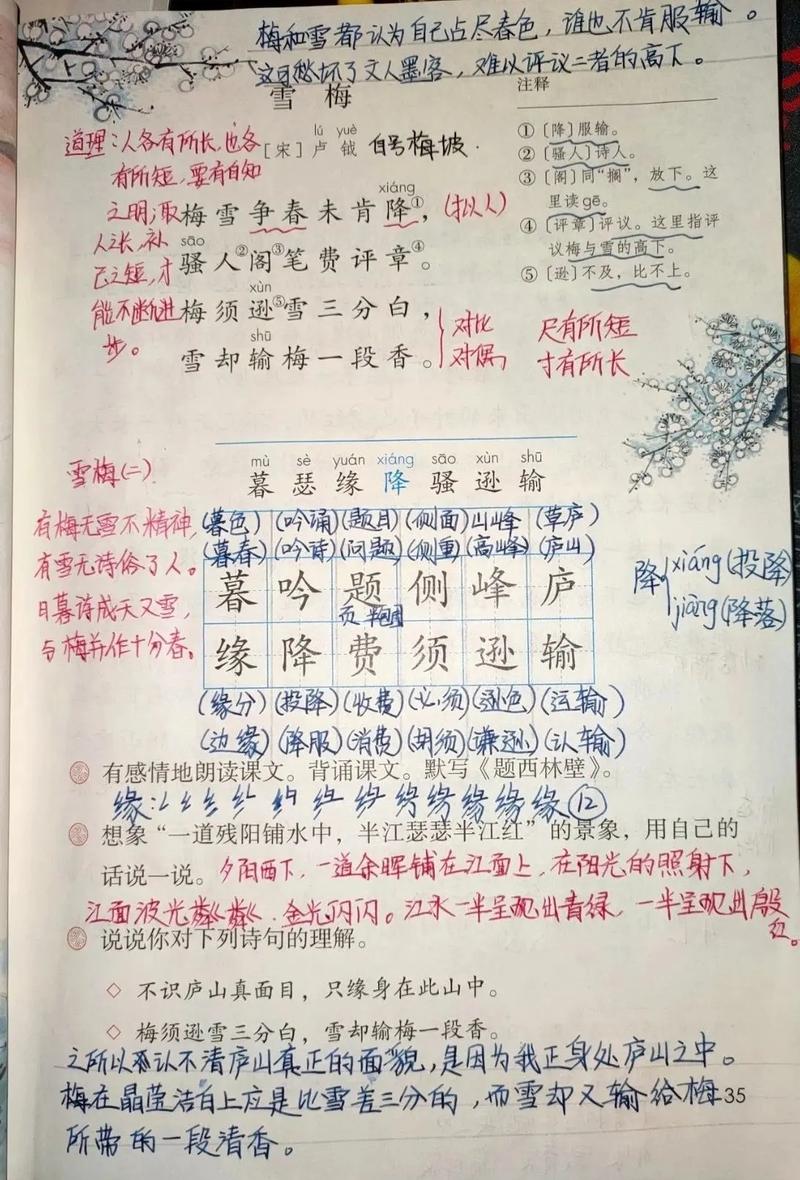 梅和雪都认为自己占尽春色，谁也不肯服输。
这可愁坏了文人墨客，难以评议二者的高下。
雪 梅
注释
lú yuè
[宋] 卢 钺 自号梅坡.
道理：人各有所长，也各
有所短，要有自知
之明；取
人之长，补
己之短，才
能不断进
步。
xiáng
梅雪争春未肯降①， (拟人)
sāo
骚人②阁③笔费评章④。
xùn
梅须逊⑤雪三分白，
shū
雪却输梅一段香。
对比
对偶
尺有所短
寸有所长
①〔降〕服输。
②〔骚人〕诗人。
③〔阁〕同“搁”，放下。这
里读gē。
④〔评章〕评议。这里指评
议梅与雪的高下。
⑤〔逊〕不及，比不上。
mù sè yuán xiáng sāo xùn shū
暮 瑟 缘 降 骚 逊 输
雪梅(二)
有梅无雪不精神，
有雪无诗俗了人。
日暮诗成天又雪，
与梅并作十分春。
(暮色) (吟诵) (题目) (侧面) 山峰 (草庐)
(暮春) (吟诗) (问题) (侧重) (高峰) (庐山)
暮 吟 题 侧 峰 庐
缘 降 费 须 逊 输
(缘分) (投降) (收费) (必须) (逊色) (运输)
(边缘) (降服) (消费) (胡须) (谦逊) (认输)
降 xiáng (投降)
jiàng (降落)
有感情地朗读课文。背诵课文。默写《题西林壁》。
缘：缘缘缘 ⑫
想象“一道残阳铺水中，半江瑟瑟半江红”的景象，用自己的
话说一说。夕阳西下，一道余晖铺在江面上，在阳光的照射下，
江面波光粼粼. 金光闪闪。江水一半呈现出青绿，一半呈现出殷
红。
说说你对下列诗句的理解。
◇ 不识庐山真面目，只缘身在此山中。
◇ 梅须逊雪三分白，雪却输梅一段香。
之所以认不清庐山真正的面貌，是因为我正身处庐山之中。
梅在晶莹洁白上应是比雪差三分的，而雪却又输给梅
所带的一段清香。
35